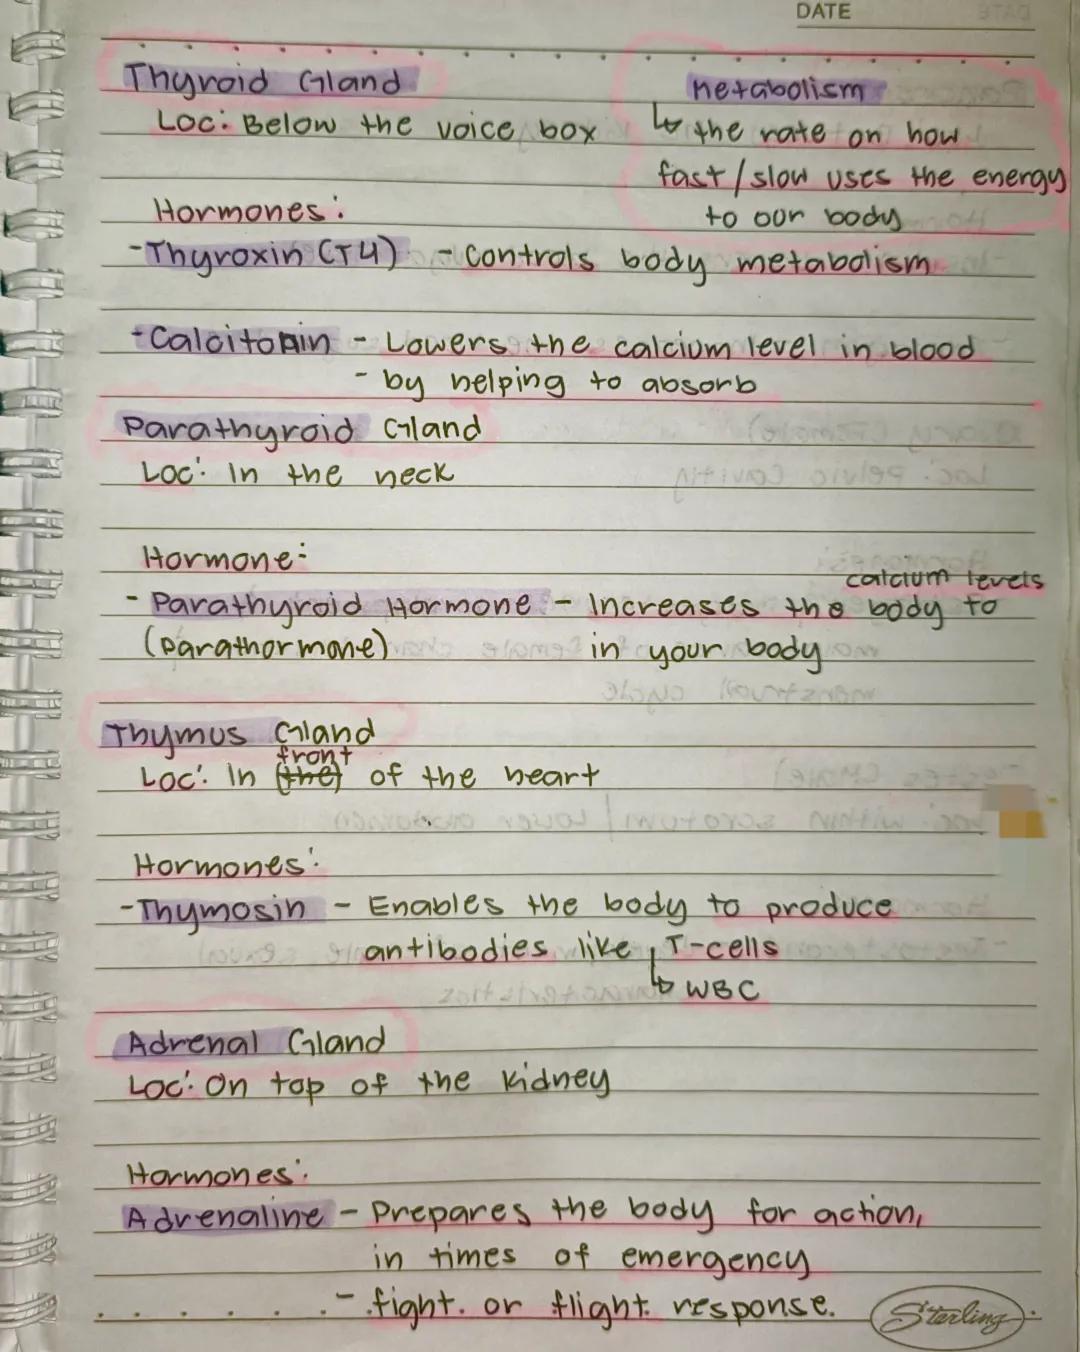 DATE
Thyroid Gland
Loc: Below the voice box
Metabolism
↳ the rate on how
fast/slow uses the energy
to our body
Hormones:
-Thyroxin (T4) - Controls body metabolism
-Calcitonin - Lowers the calcium level in blood
- by helping to absorb
Parathyroid Gland
Loc: In the neck
Hormone:
calcium levels
- Parathyroid Hormone - Increases the body to
(parathormone) in your body
Thymus Gland
front
Loc: In (the) of the heart
Hormones:
-Thymosin - Enables the body to produce
antibodies like T-cells
↳ WBC
Adrenal Gland
Loc: On top of the kidney
Hormones:
Adrenaline - Prepares the body for action,
in times of emergency
- fight. or flight. response.
Sterling